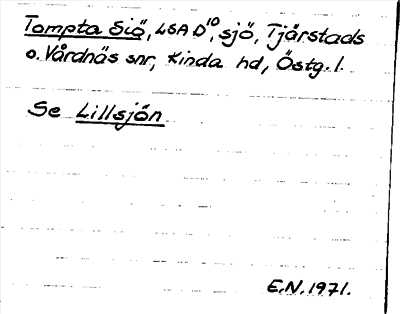 Tompta Siö, LSA D¹⁰, sjö, Tjärstads
o. Vårdnäs snr, Kinda hd, Östg. l.
Se Lillsjön
E.N. 1971.